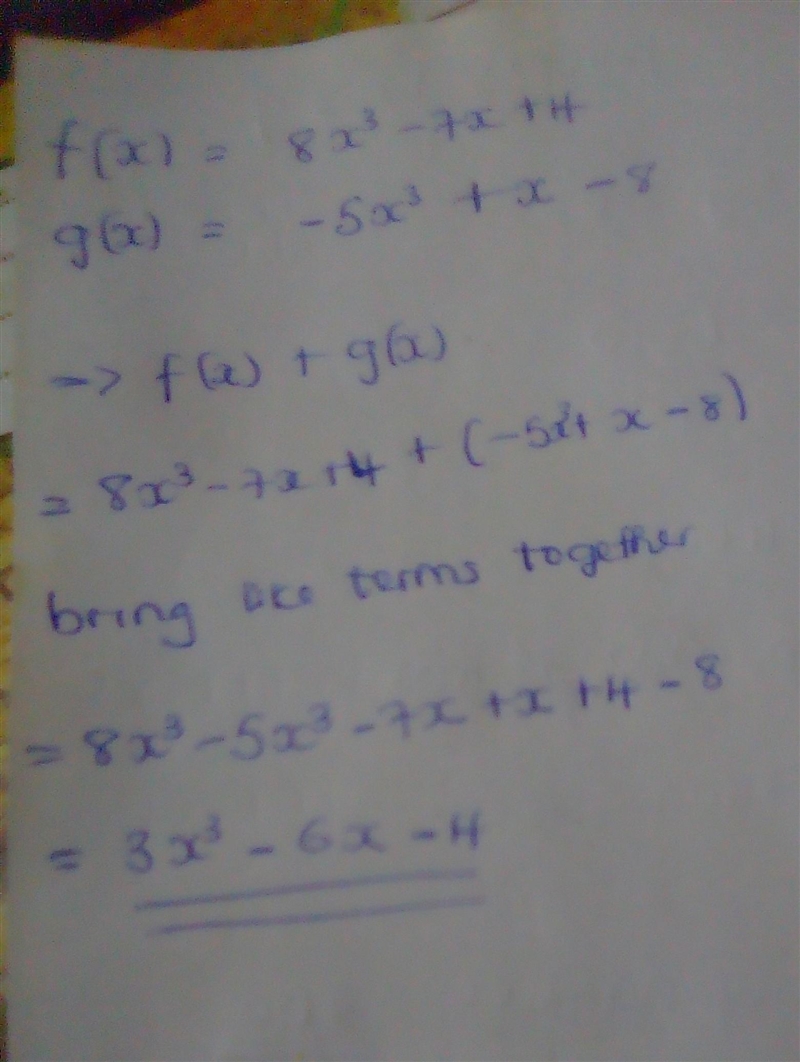 f(x) = 8x³ - 7x + 4
g(x) = -5x³ + x - 8
-> f(x) + g(x)
= 8x³ - 7x + 4 + (-5x³ + x - 8)
bring like terms together
= 8x³ - 5x³ - 7x + x + 4 - 8
= 3x³ - 6x - 4